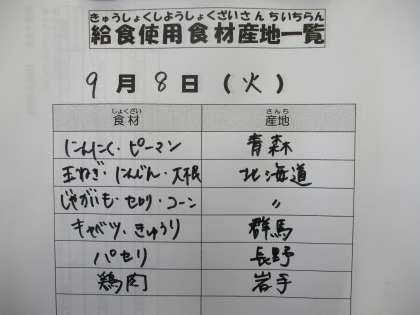 きゅうしょくしようしょくざいさんちいちらん
給食使用食材産地一覧
9月8日(火)
しょくざい さんち
食材 産地
にんにく・ピーマン 青森
玉ねぎ・にんじん・大根 北海道
じゃがいも・セロリ・コーン 〃
キャベツ・きゅうり 群馬
パセリ 長野
鶏肉 岩手